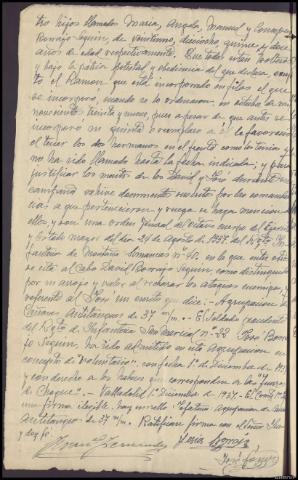 tro hijos llamados María, Angela, Manuel y
Borrajo Seguin, de veintiuno, dieciocho, quince y doce
años de edad respectivamente. Que todos están solteros
y bajo la patria potestad y obediencia del que declara, excep-
to el Ramon que está incorporado en filas el que
se incorporó, cuando se le ordenaron en octubre de mil
novecientos treinta y nueve, pues a pesar de que antes se
incorporó su quinta reemplazo a él le favorecía
el tener los dos hermanos en el frente como los tenía y
no ha sido llamado hasta la fecha indicada; y para
justificar los meritos de los David y José durante la
campaña exhibe documentos expedidos por las comandan-
cias a que pertenecieron y ruega se haga mencion de
ellos, y son una orden general del octavo cuerpo del Ejercito
y Estado mayor del dia 24 de Agosto de 1937 del Regto In-
fanteria de Montaña Simancas nº 40. en la que entre otros
se cita al Cabo David Borrajo Seguin, como distinguido
por su arrojo y valor al rechazar los ataques enemigos, y
referente al José un escrito que dice: - Agrupacion de
Cañones Antitanques de 37 m/m. - El Soldado procedente
del Regto de Infanteria San Marcial nº 22 José Borra-
jo Seguin, ha sido admitido en esta Agrupacion en
concepto de "voluntario", con fecha 1º de Diciembre de 1937
y con derecho a los haberes que corresponden a las "fuerzas
de Choque". - Valladolid 1º Diciembre de 1937. - El Comte
una firma ilegible, hay un sello "Jefatura Agrupacion de Cañones
Antitanques" de 37 m/m. Ratifican firman con el Señor Juez
y doy fé.